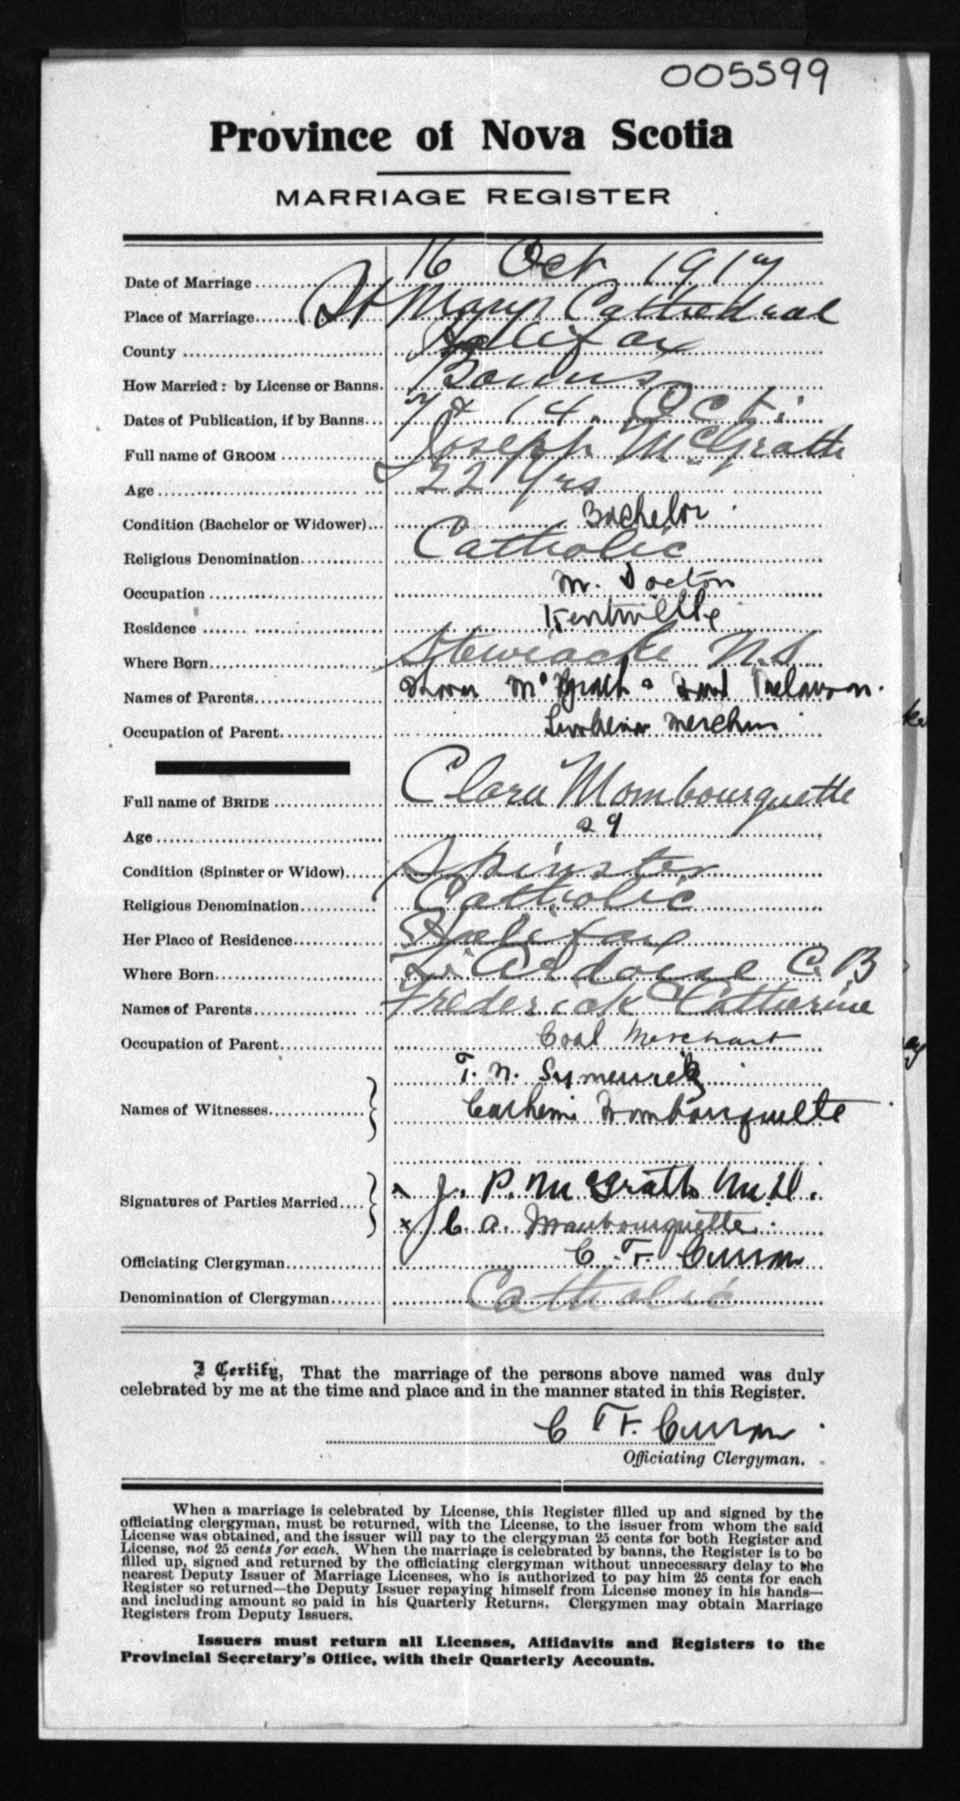 005599
Province of Nova Scotia
MARRIAGE REGISTER
Date of Marriage 16 Oct 1917
Place of Marriage St Marys Cathedral
County Halifax
How Married: by License or Banns. Banns
Dates of Publication, if by Banns 7 & 14. Oct.
Full name of GROOM Joseph McGrath
Age 22 Yrs
Condition (Bachelor or Widower) Bachelor
Religious Denomination Catholic
Occupation M. Doctor
Residence Kentville
Where Born Stewiacke N.S
Names of Parents McGrath
Occupation of Parent.
Full name of BRIDE Clara Mombourquette
Age 29
Condition (Spinster or Widow) Spinster
Religious Denomination Catholic
Her Place of Residence Halifax
Where Born L'Ardoise C.B
Names of Parents Frederick Catherine
Occupation of Parent Coal Merchant
T. N.
Names of Witnesses Mombourquette
x J. P. McGrath M.D.
Signatures of Parties Married
x C. A. Mombourquette.
Officiating Clergyman C. F. Curran
Denomination of Clergyman Catholic
I Certify, That the marriage of the persons above named was duly
celebrated by me at the time and place and in the manner stated in this Register.
C F. Curran
Officiating Clergyman.
When a marriage is celebrated by License, this Register filled up and signed by the
officiating clergyman, must be returned, with the License, to the issuer from whom the said
License was obtained, and the issuer will pay to the clergyman 25 cents for both Register and
License, not 25 cents for each. When the marriage is celebrated by banns, the Register is to be
filled up, signed and returned by the officiating clergyman without unnecessary delay to the
nearest Deputy Issuer of Marriage Licenses, who is authorized to pay him 25 cents for each
Register so returned—the Deputy Issuer repaying himself from License money in his hands—
and including amount so paid in his Quarterly Returns. Clergymen may obtain Marriage
Registers from Deputy Issuers.
Issuers must return all Licenses, Affidavits and Registers to the
Provincial Secretary's Office, with their Quarterly Accounts.